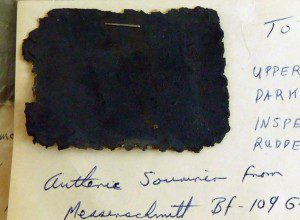 TO
UPPER
DARK
INSPE
RUDDE
Authenic Souvenir from
Messerschmitt Bf-109 G-